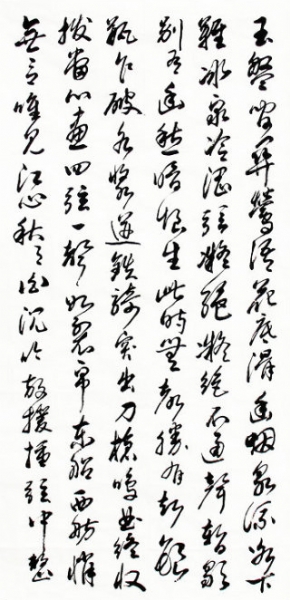 玉盤間關鶯語花底滑幽咽泉流冰下
難冰泉冷澀弦凝絕凝絕不通聲暫歇
別有幽愁暗恨生此時無聲勝有聲銀
瓶乍破水漿迸鐵騎突出刀槍鳴曲終收
撥當心畫四弦一聲如裂帛東船西舫悄
無言唯見江心秋月白沉吟放撥插弦中整